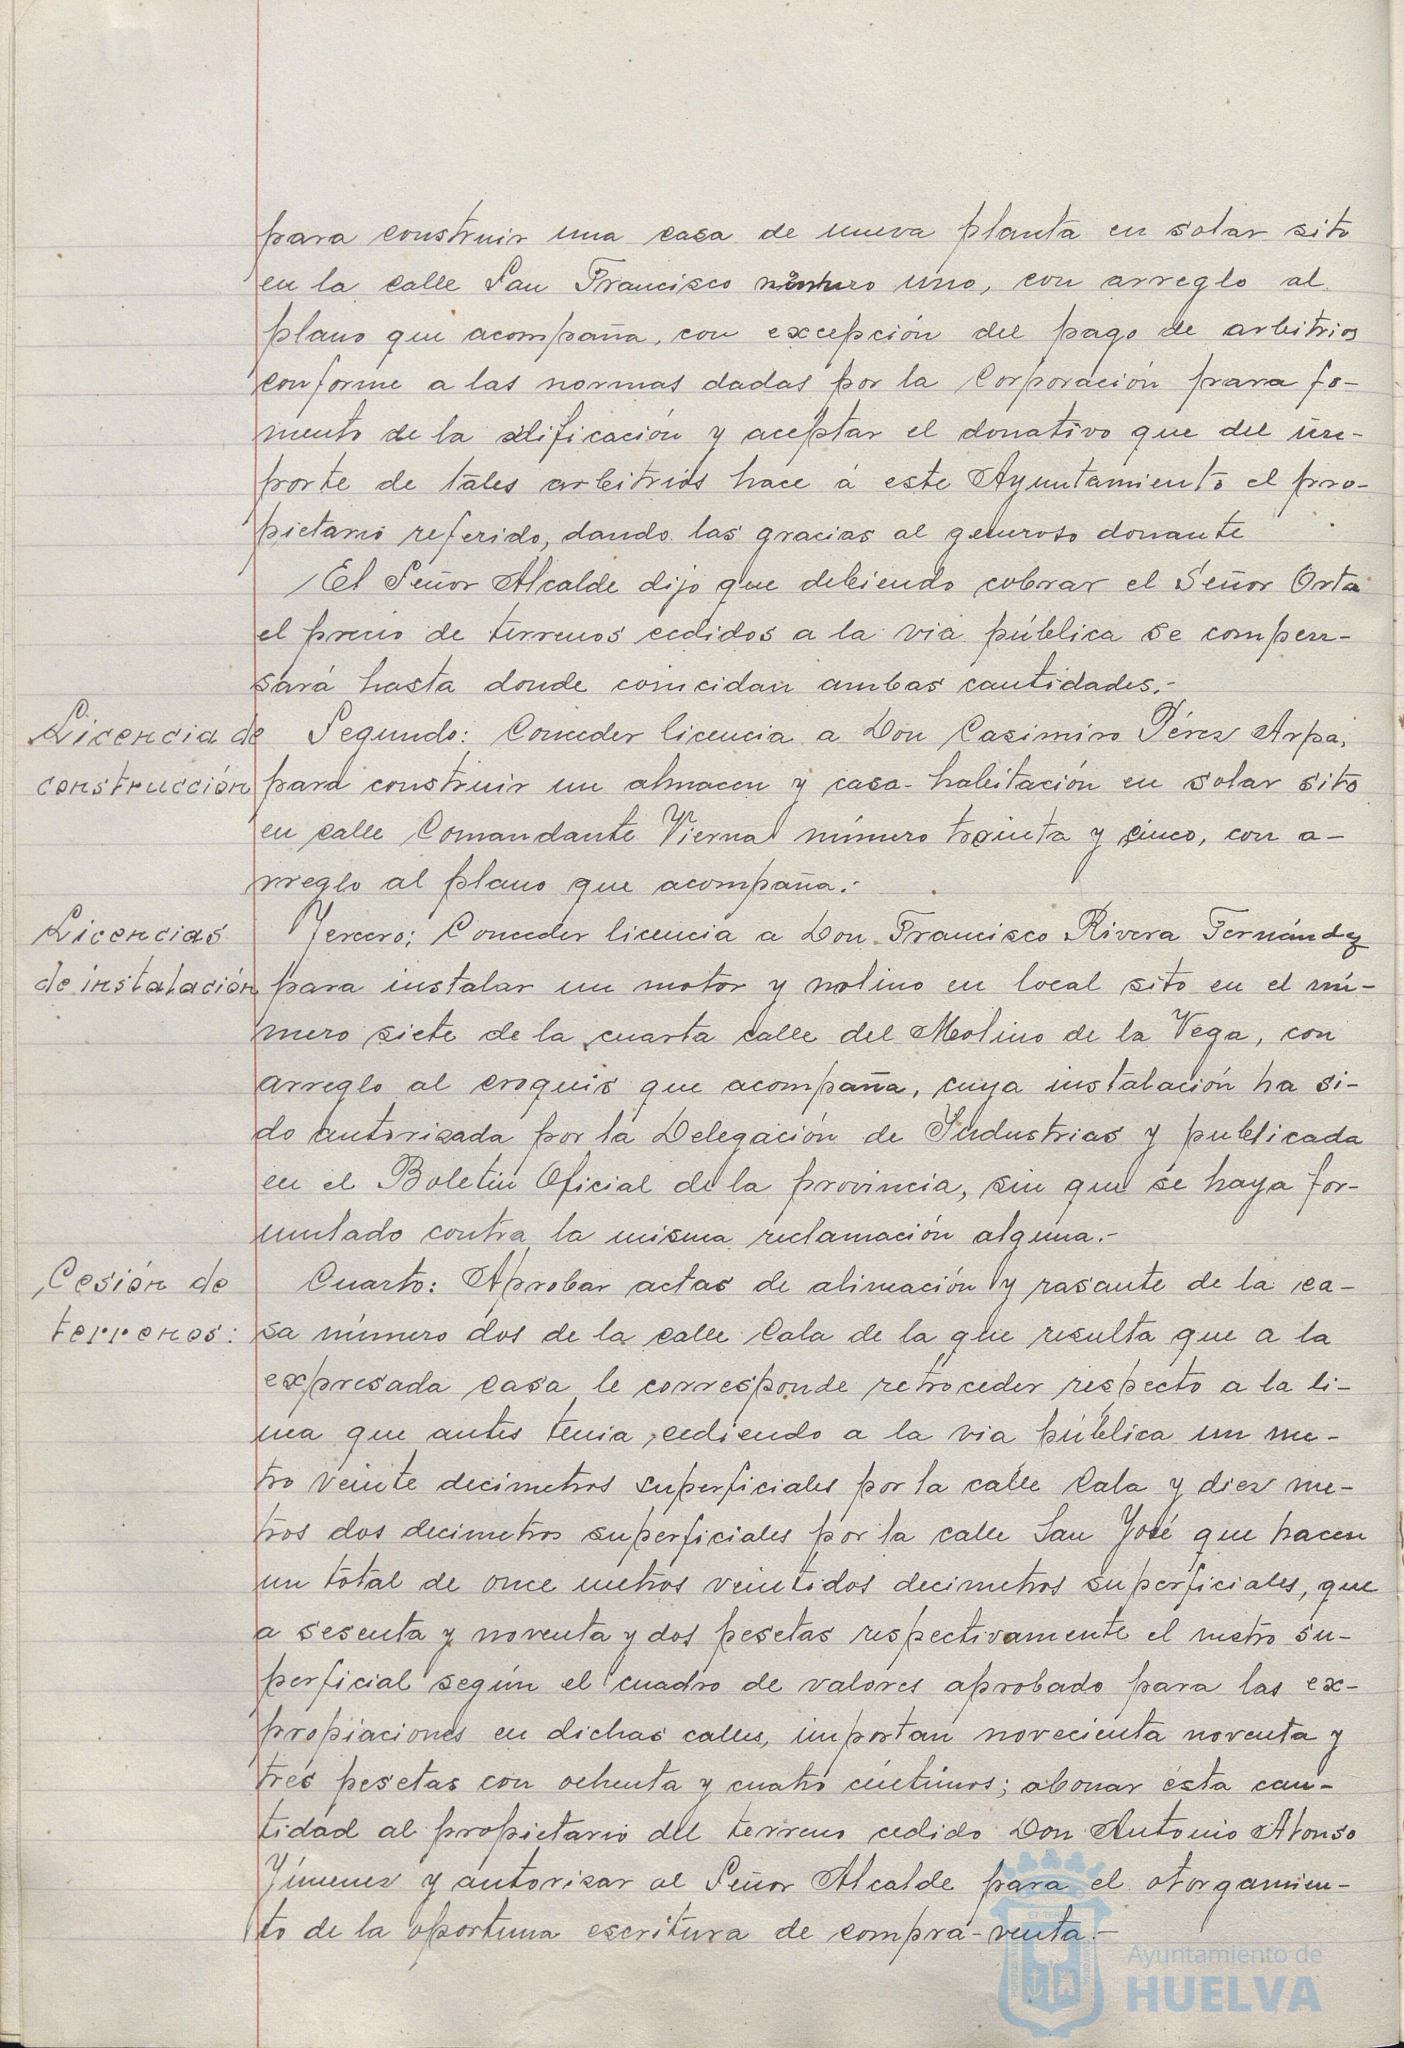 para construir una casa de nueva planta en solar sito
en la calle San Francisco número uno, con arreglo al
plano que acompaña, con excepción del pago de arbitrios
conforme a las normas dadas por la Corporación para fo-
mento de la edificación y aceptar el donativo que del im-
porte de tales arbitrios hace á este Ayuntamiento el pro-
pietario referido, dando las gracias al generoso donante
El Señor Alcalde dijo que debiendo cobrar el Señor Orta
el precio de terrenos cedidos a la via pública se compen-
sará hasta donde coincidan ambas cantidades.-
Licencia de
construcción
Segundo: Conceder licencia a Don Casimiro Pérez Arpa,
para construir un almacen y casa-habitación en solar sito
en calle Comandante Vierna número treinta y cinco, con a-
rreglo al plano que acompaña.-
Licencias
de instalación
Tercero: Conceder licencia a Don Francisco Rivera Fernández
para instalar un motor y molino en local sito en el nú-
mero siete de la cuarta calle del Molino de la Vega, con
arreglo al croquis que acompaña, cuya instalación ha si-
do autorizada por la Delegación de Industrias y publicada
en el Boletin Oficial de la provincia, sin que se haya for-
mulado contra la misma reclamación alguna.-
Cesión de
terrenos:
Cuarto: Aprobar actas de alineación y rasante de la ca-
sa número dos de la calle Cala de la que resulta que a la
expresada casa le corresponde retroceder respecto a la li-
nea que antes tenia, cediendo a la via pública un me-
tro veinte decimetros superficiales por la calle Cala y diez me-
tros dos decimetros superficiales por la calle San José que hacen
un total de once metros veintidos decimetros superficiales, que
a sesenta y noventa y dos pesetas respectivamente el metro su-
perficial según el cuadro de valores aprobado para las ex-
propiaciones en dichas calles, importan novecienta noventa y
tres pesetas con ochenta y cuatro céntimos; abonar ésta can-
tidad al propietario del terreno cedido Don Antonio Alonso
Jimenez y autorizar al Señor Alcalde para el otorgamien-
to de la oportuna escritura de compra-venta.-
Ayuntamiento de
HUELVA